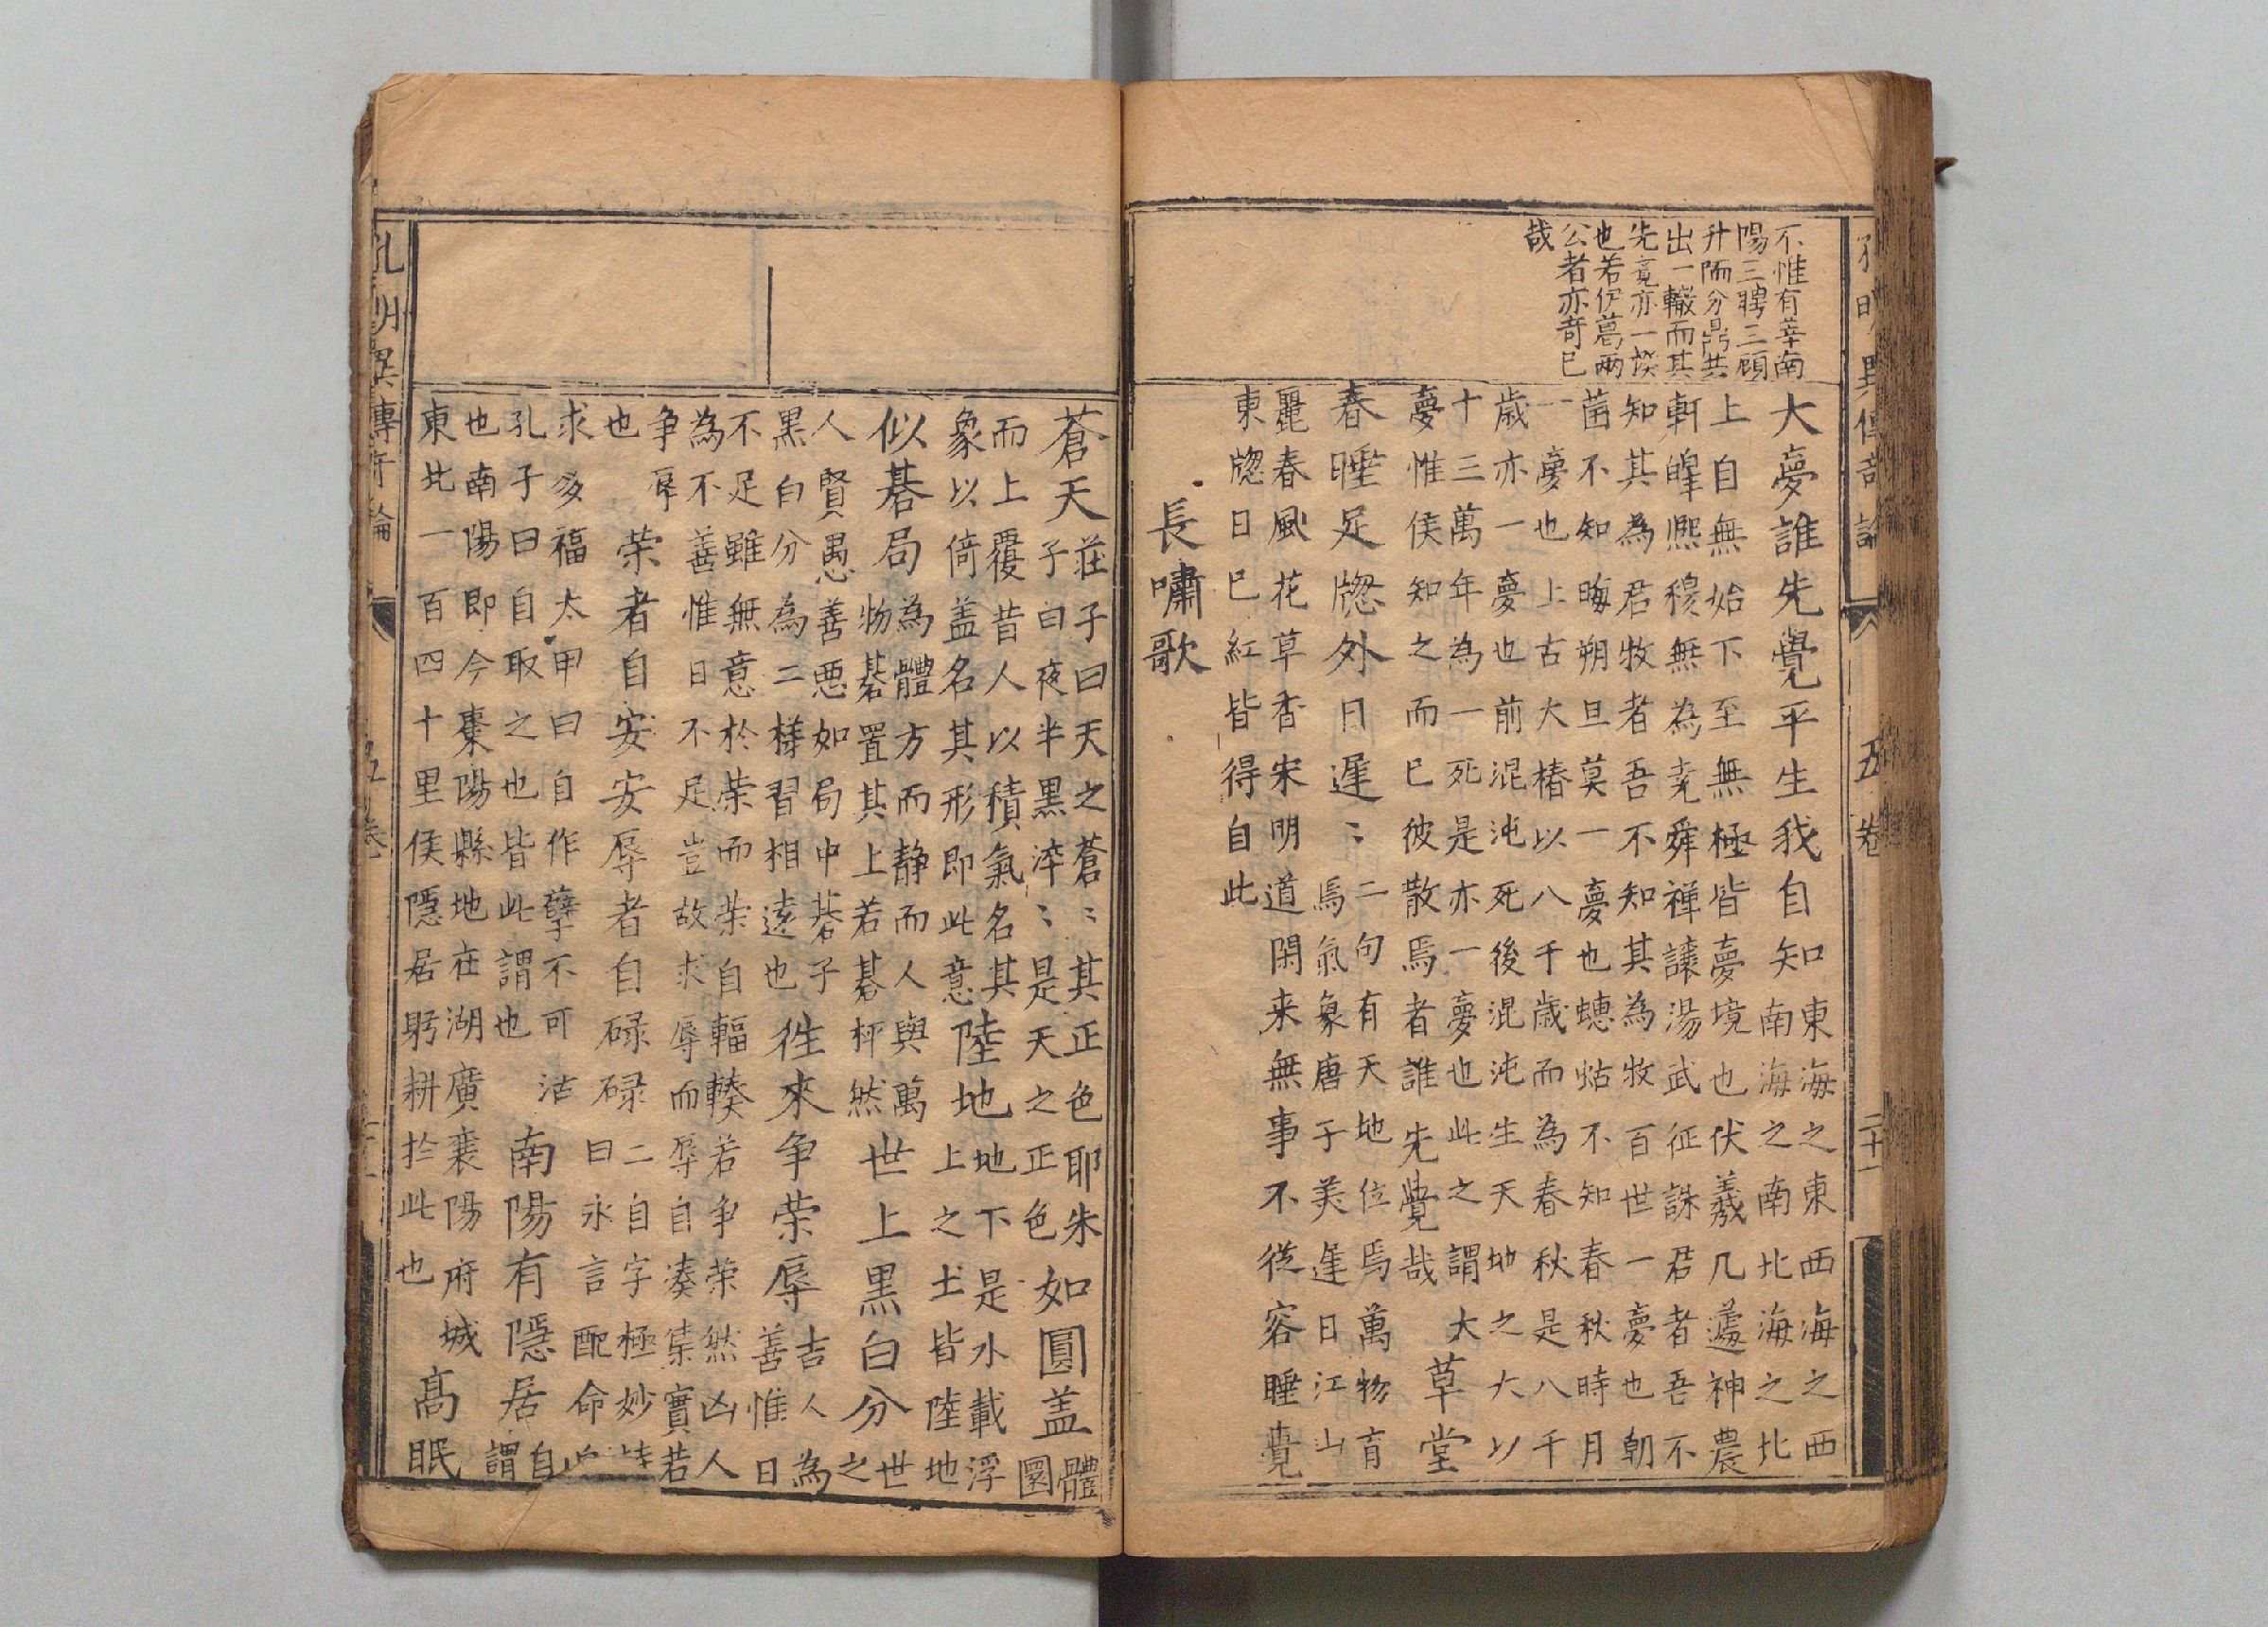 孔明異傳奇論 五卷 二十一
不惟有莘南
陽三聘三顧
升陑分鼎共
出一轍而其
先覺亦一揆
也若伊葛兩
公者亦奇已
哉
大夢誰先覺平生我自知
東海之東西海之西
南海之南北海之北
上自無始下至無極皆夢境也伏羲几蘧神農
軒皥熙穆無為堯舜禪讓湯武征誅君者吾不
知其為君牧者吾不知其為牧百世一夢也朝
菌不知晦朔旦莫一夢也蟪蛄不知春秋時月
一夢也上古大椿以八千歲而為春秋是八千
歲亦一夢也前混沌死後混沌生天地之大以
十三萬年為一死是亦一夢也此之謂大
夢惟侯知之而已彼散焉者誰先覺哉
草堂
春睡足牕外日遲〻
二句有天地位焉萬物育
焉氣象唐子美遲日江山
麗春風花草香宋明道閑来無事不從容睡覺
東牕日已紅皆得自此
長嘯歌
蒼天
莊子曰天之蒼〻其正色耶朱
子曰夜半黑淬〻是天之正色
如圓盖
體
圜
而上覆昔人以積氣名其
象以倚盖名其形即此意
陸地
地下是水載浮
上之土皆陸地
似碁局
為體方而静而人與萬
物碁置其上若碁枰然
世上黑白分
世
之
人賢愚善悪如局中碁子
黑白分為二樣習相遠也
徃來争荣辱
吉人為
善惟日
不足雖無意於荣而荣自輻輳若争荣然凶人
為不善惟日不足豈故求辱而辱自凑集實若
争辱
也
荣者自安安辱者自碌碌
二自字極妙詩
曰永言配命
求多福太甲曰自作孽不可活
孔子曰自取之也皆此謂也
南陽有隱居
自
謂
也南陽即今棗陽縣地在湖廣襄陽府城
東北一百四十里侯隱居躬耕於此也
高眠
孔明異傳奇論 五卷